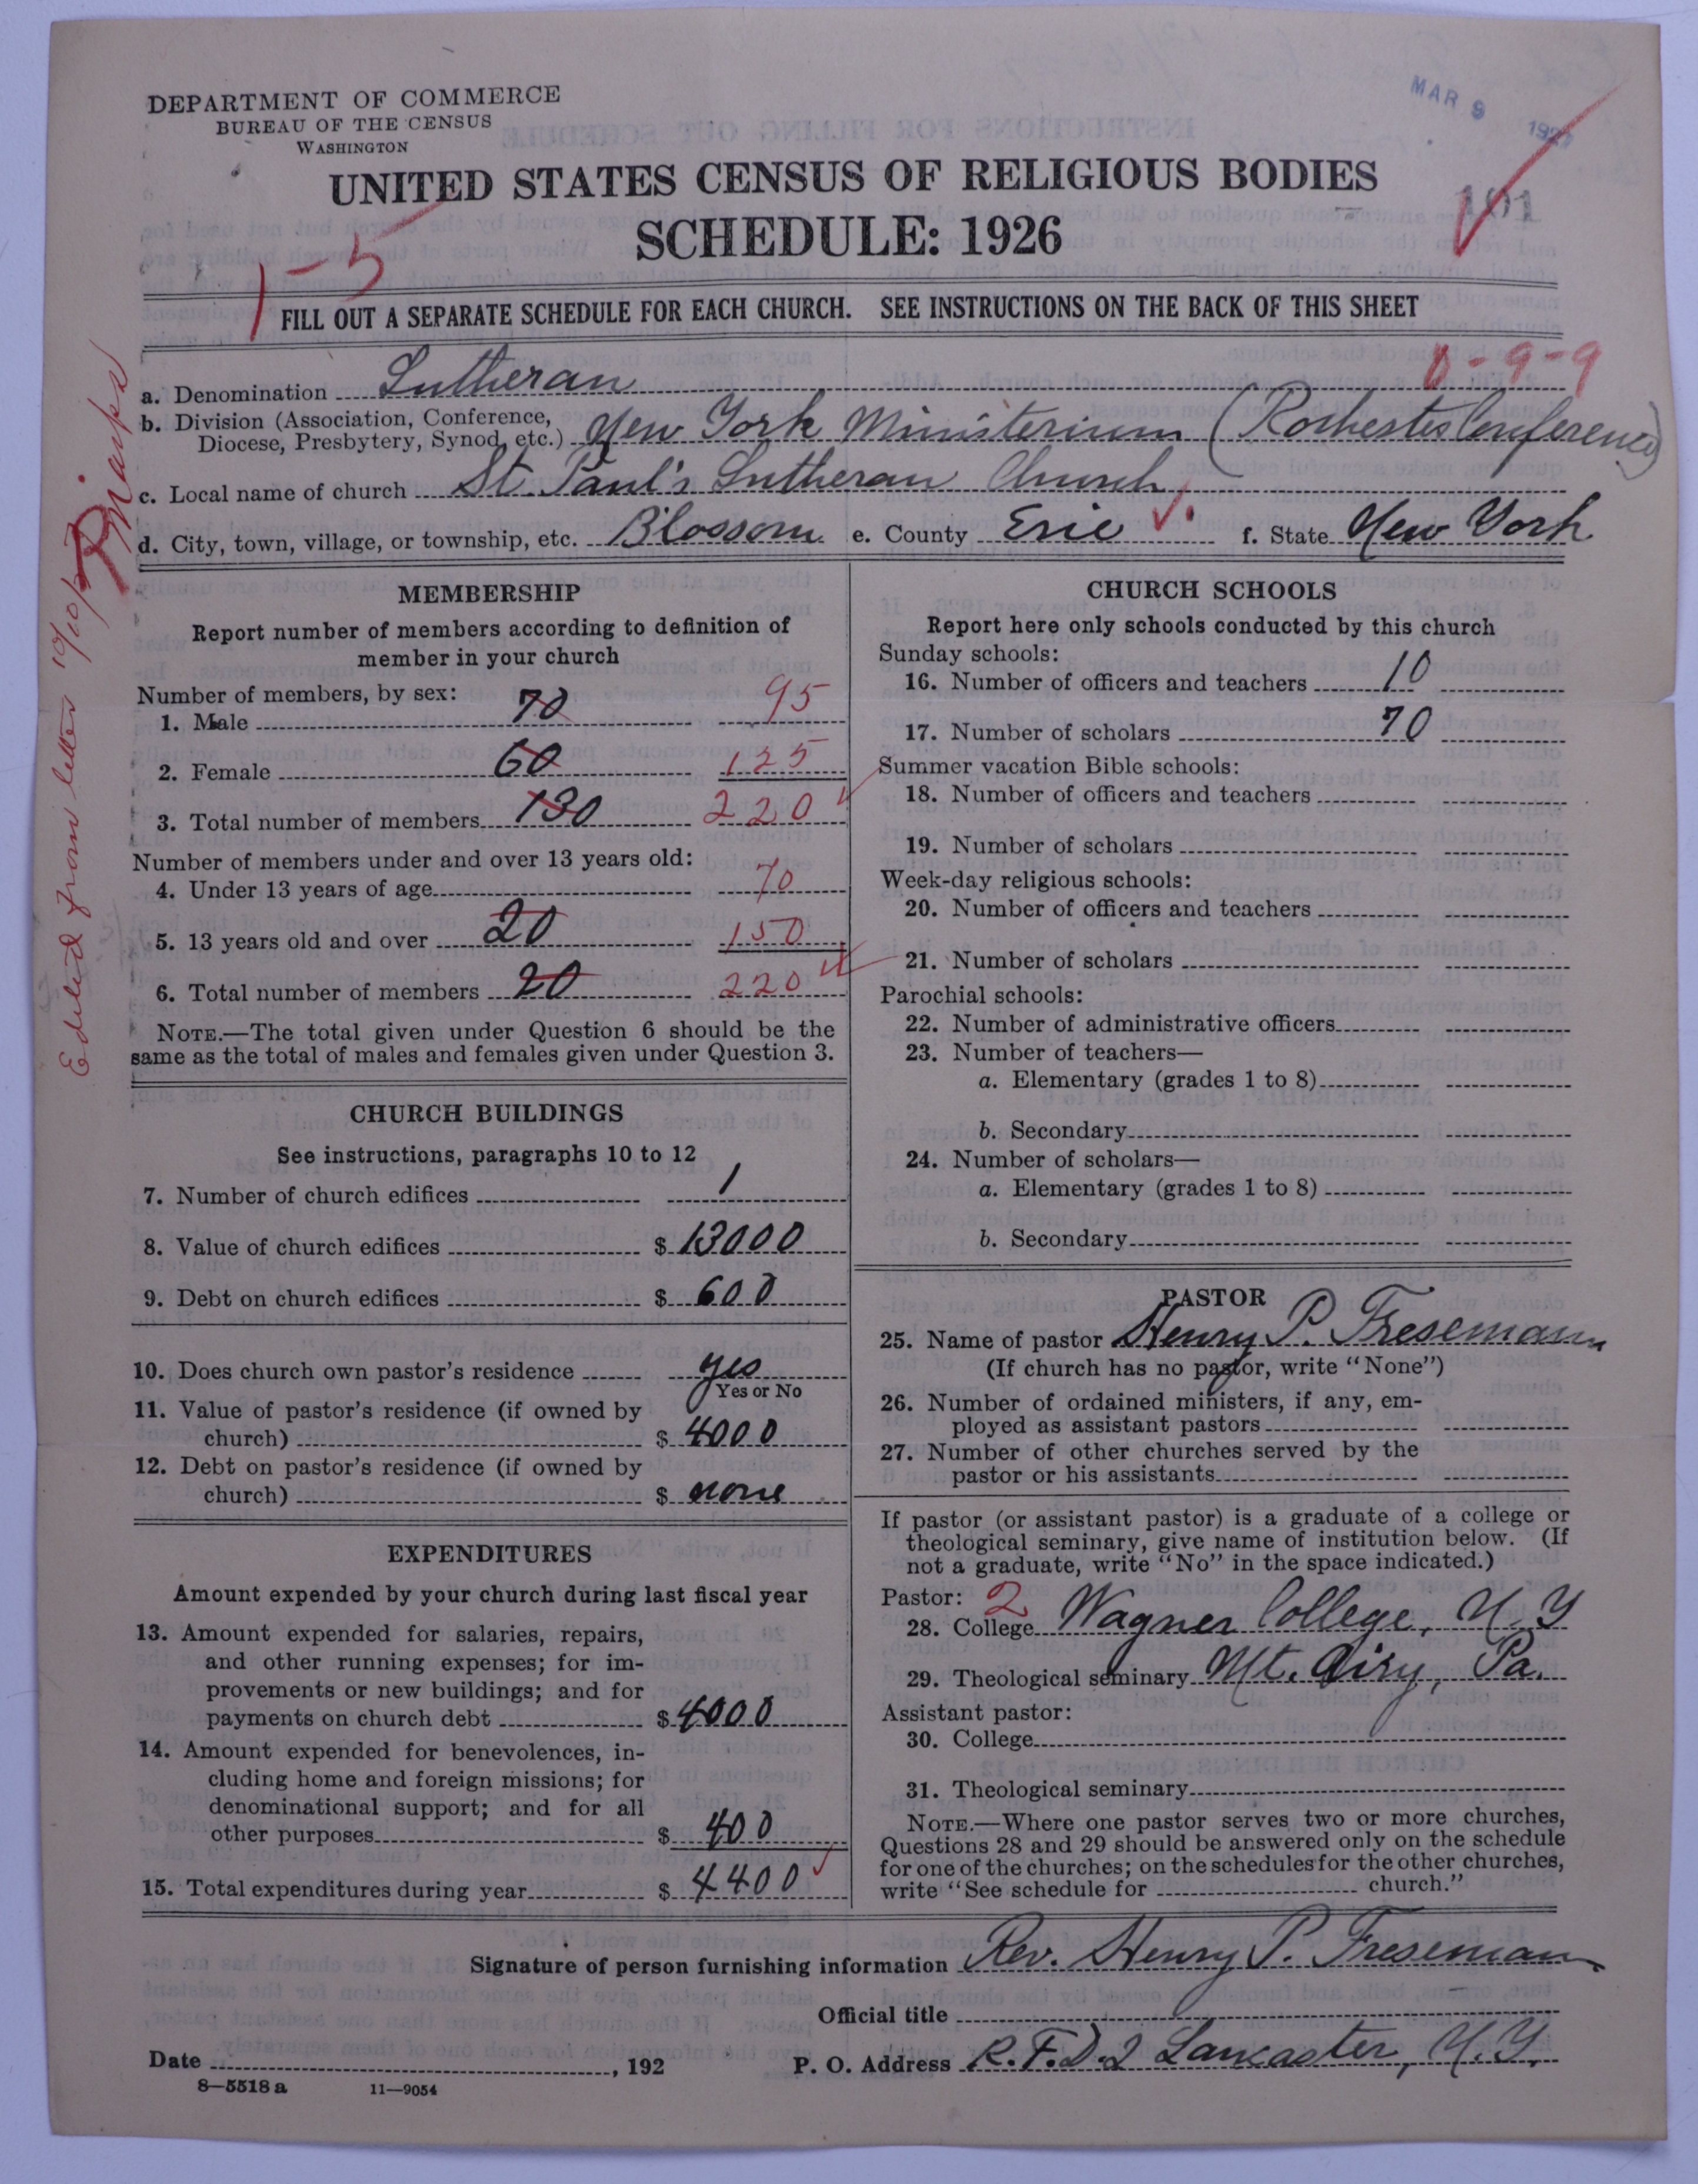 DEPARTMENT OF COMMERCE
BUREAU OF THE CENSUS
WASHINGTON
MAR 9 192
UNITED STATES CENSUS OF RELIGIOUS BODIES
SCHEDULE: 1926
101
1-5
FILL OUT A SEPARATE SCHEDULE FOR EACH CHURCH. SEE INSTRUCTIONS ON THE BACK OF THIS SHEET
0-9-9
a. Denomination Lutheran
b. Division (Association, Conference,
Diocese, Presbytery, Synod, etc.) New York Ministerium (Rochester Conference)
c. Local name of church St. Paul's Lutheran Church
d. City, town, village, or township, etc. Blossom e. County Erie f. State New York
Edited from letter 10/10/
MEMBERSHIP
Report number of members according to definition of
member in your church
Number of members, by sex:
1. Male 70 95
2. Female 60 125
3. Total number of members 130 220
Number of members under and over 13 years old:
4. Under 13 years of age 70
5. 13 years old and over 20 150
6. Total number of members 20 220
NOTE.—The total given under Question 6 should be the
same as the total of males and females given under Question 3.
CHURCH BUILDINGS
See instructions, paragraphs 10 to 12
7. Number of church edifices 1
8. Value of church edifices $ 13000
9. Debt on church edifices $ 600
10. Does church own pastor's residence yes
Yes or No
11. Value of pastor's residence (if owned by
church) $ 4000
12. Debt on pastor's residence (if owned by
church) $ none
EXPENDITURES
Amount expended by your church during last fiscal year
13. Amount expended for salaries, repairs,
and other running expenses; for im-
provements or new buildings; and for
payments on church debt $ 4000
14. Amount expended for benevolences, in-
cluding home and foreign missions; for
denominational support; and for all
other purposes $ 400
15. Total expenditures during year $ 4400
CHURCH SCHOOLS
Report here only schools conducted by this church
Sunday schools:
16. Number of officers and teachers 10
17. Number of scholars 70
Summer vacation Bible schools:
18. Number of officers and teachers
19. Number of scholars
Week-day religious schools:
20. Number of officers and teachers
21. Number of scholars
Parochial schools:
22. Number of administrative officers
23. Number of teachers—
a. Elementary (grades 1 to 8)
b. Secondary
24. Number of scholars—
a. Elementary (grades 1 to 8)
b. Secondary
PASTOR
25. Name of pastor Henry P. Fresemann
(If church has no pastor, write "None")
26. Number of ordained ministers, if any, em-
ployed as assistant pastors
27. Number of other churches served by the
pastor or his assistants
If pastor (or assistant pastor) is a graduate of a college or
theological seminary, give name of institution below. (If
not a graduate, write "No" in the space indicated.)
Pastor: 2
28. College Wagner College, N.Y
29. Theological seminary Mt. Airy, Pa.
Assistant pastor:
30. College
31. Theological seminary
NOTE.—Where one pastor serves two or more churches,
Questions 28 and 29 should be answered only on the schedule
for one of the churches; on the schedules for the other churches,
write "See schedule for church."
Signature of person furnishing information Rev. Henry P. Fresemann
Official title
Date , 192
P. O. Address R.F.D. 2 Lancaster, N.Y.
8—5518 a 11—9054